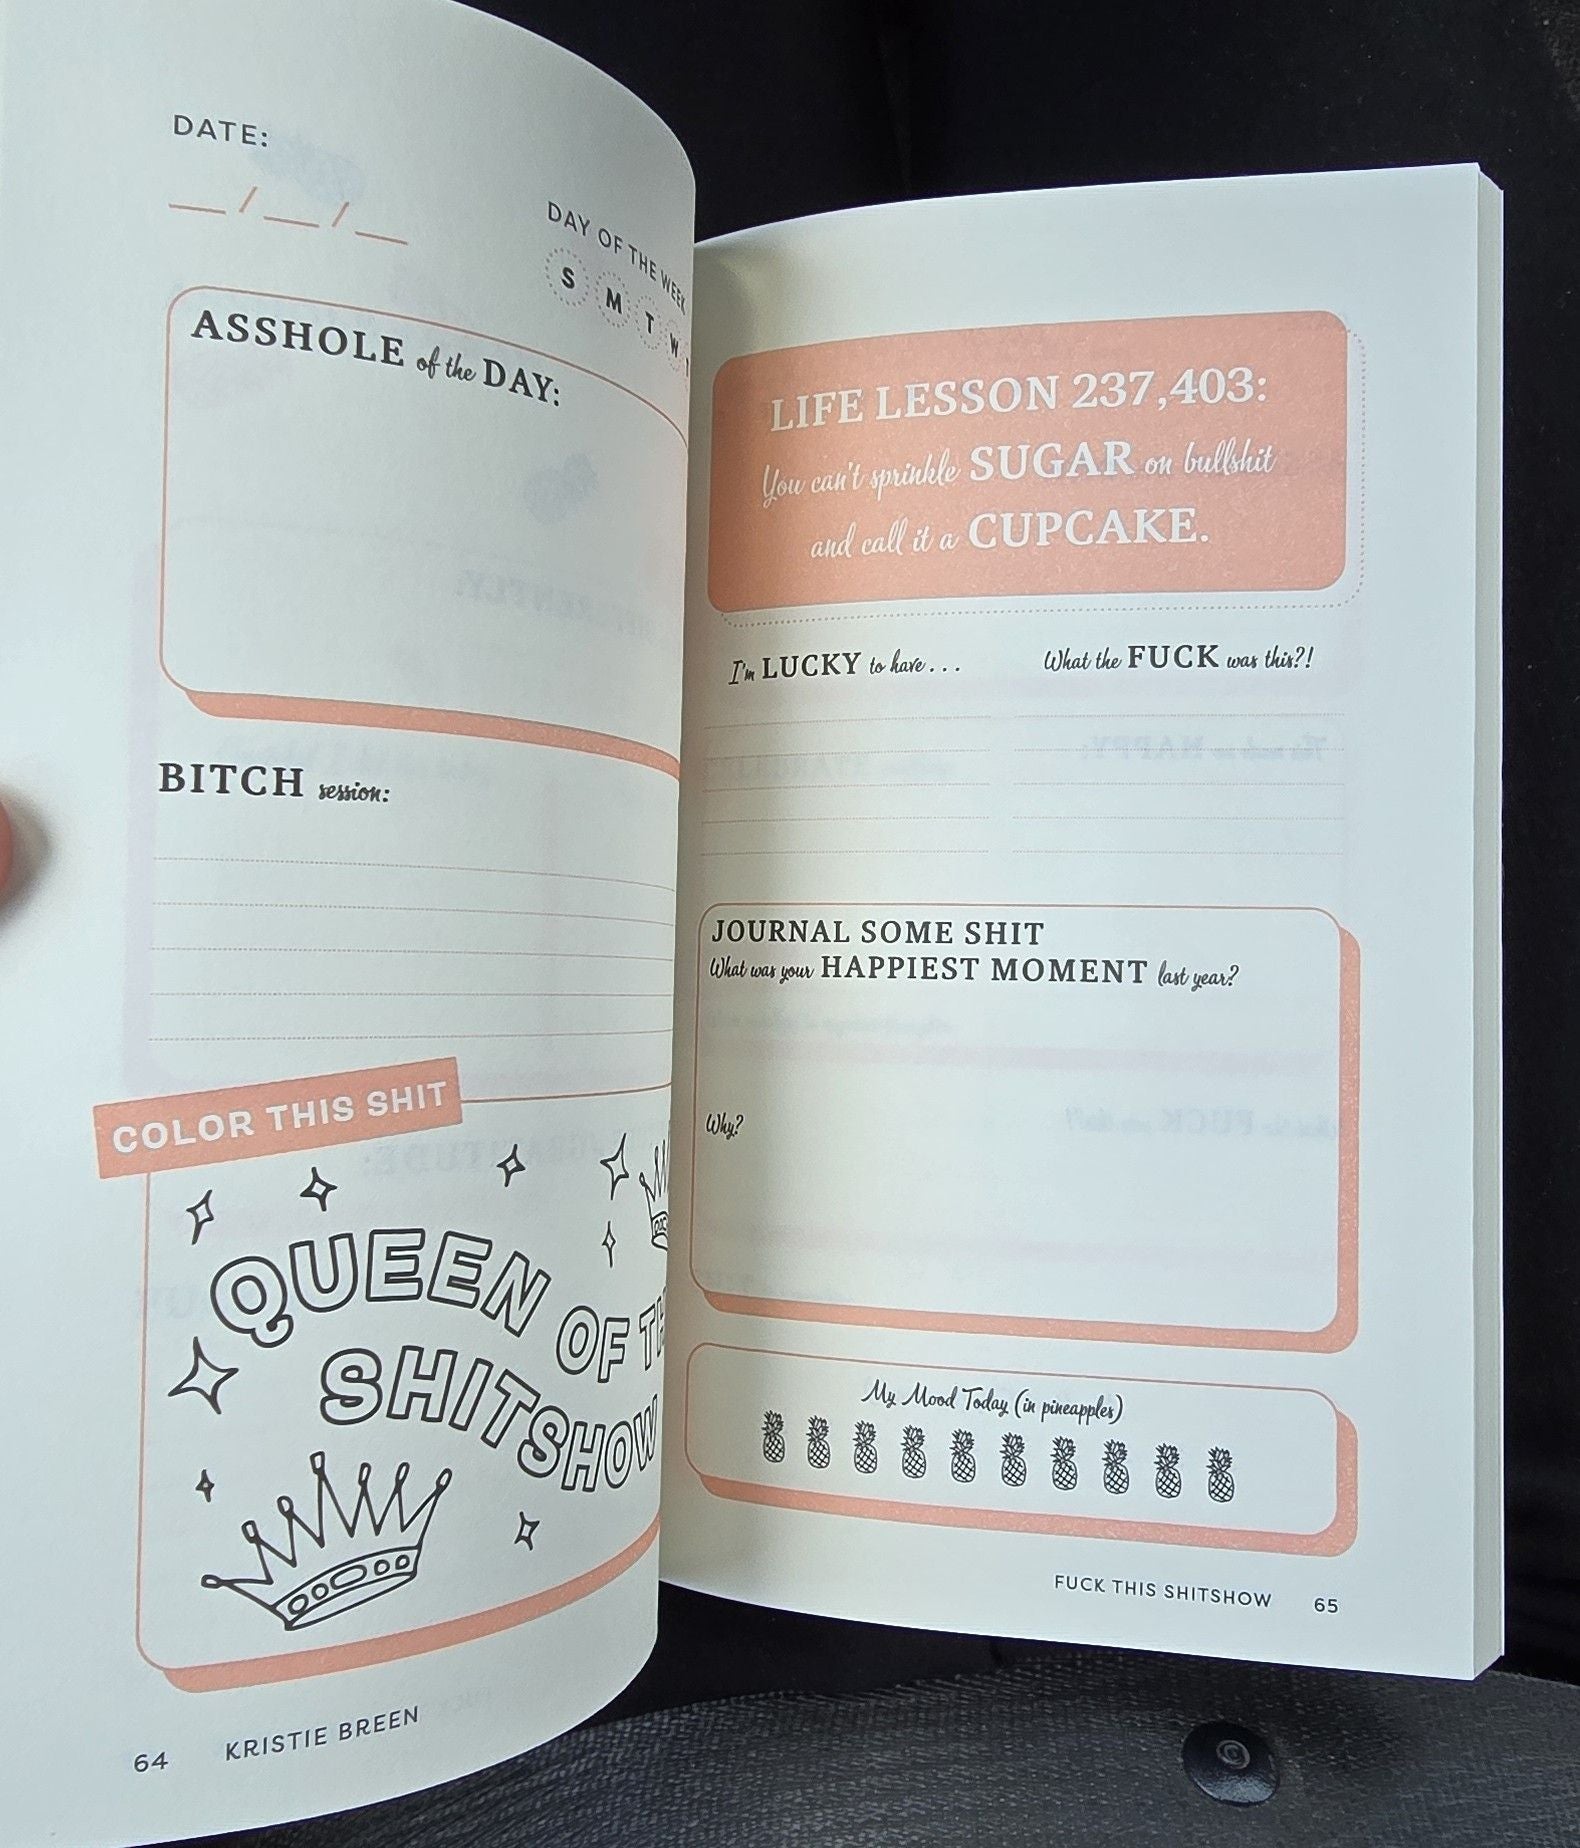 DATE:
__/__/__
DAY OF THE WEEK
S M T W
ASSHOLE of the DAY:
BITCH session:
COLOR THIS SHIT
QUEEN OF
SHITSHOW
64 KRISTIE BREEN
LIFE LESSON 237,403:
You can't sprinkle SUGAR on bullshit
and call it a CUPCAKE.
I'm LUCKY to have . . .
What the FUCK was this?!
JOURNAL SOME SHIT
What was your HAPPIEST MOMENT last year?
Why?
My Mood Today (in pineapples)
FUCK THIS SHITSHOW 65